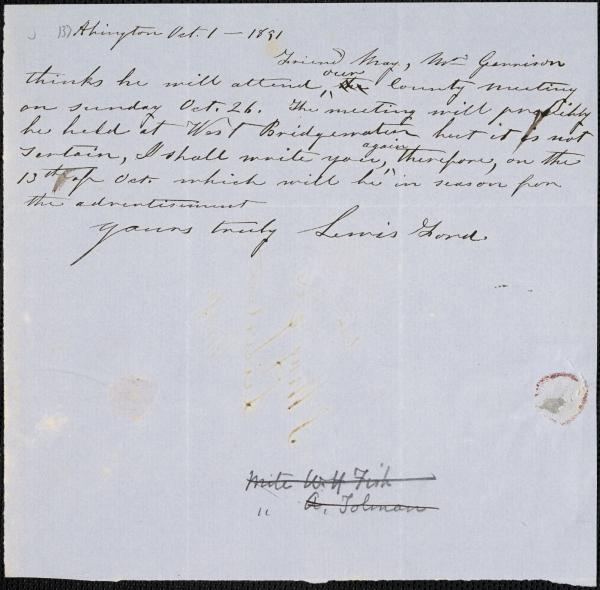 Abington Oct. 1 - 1851
Friend May, Mr. Garrison
our
thinks he will attend the County meeting
on sunday Oct. 26. The meeting will probibly
be held at West Bridgewater but it is not
Sertain, I shall write you, therefore, on the
again
13th of Oct. which will be in season for
the advertisment
yours truly Lewis Ford.
Write W. H Fish
" A. Tolman